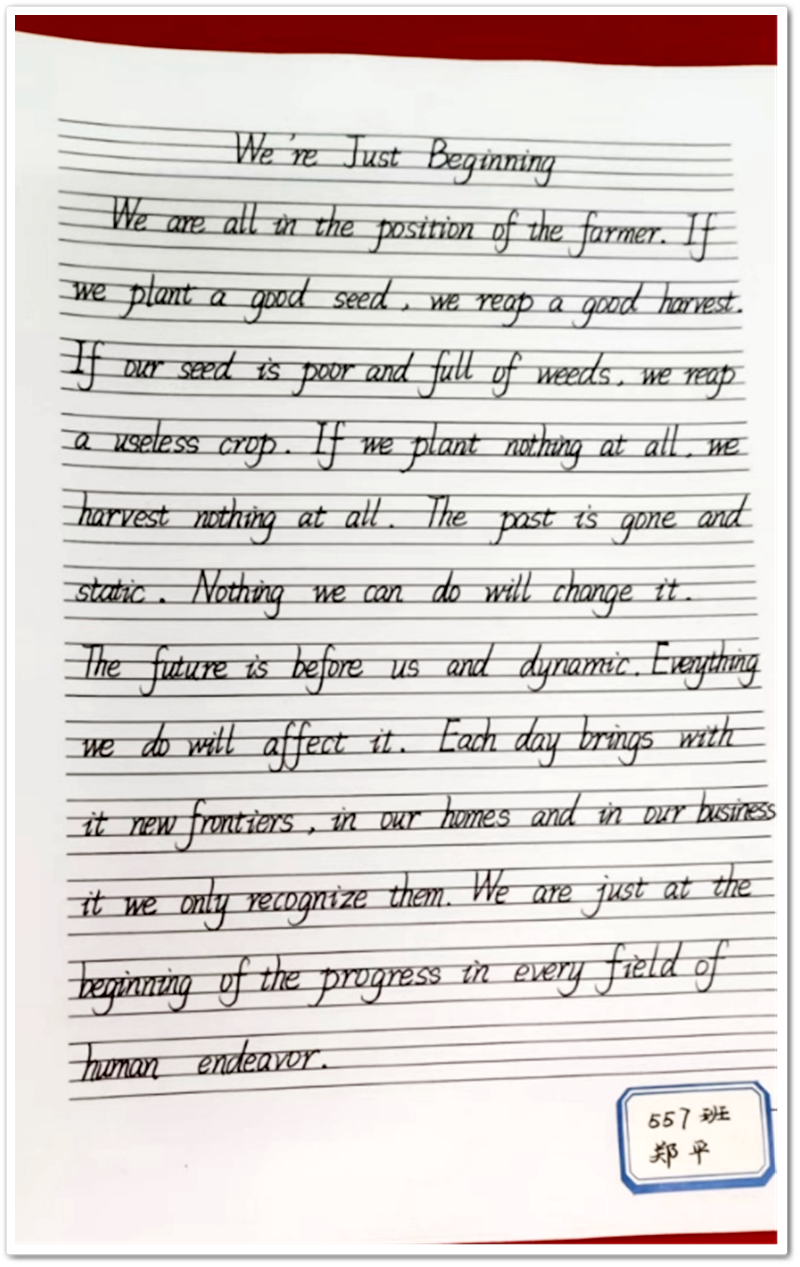 We're Just Beginning
We are all in the position of the farmer. If
we plant a good seed, we reap a good harvest.
If our seed is poor and full of weeds, we reap
a useless crop. If we plant nothing at all, we
harvest nothing at all. The past is gone and
static. Nothing we can do will change it.
The future is before us and dynamic. Everything
we do will affect it. Each day brings with
it new frontiers, in our homes and in our business
it we only recognize them. We are just at the
beginning of the progress in every field of
human endeavor.
557班
郑平